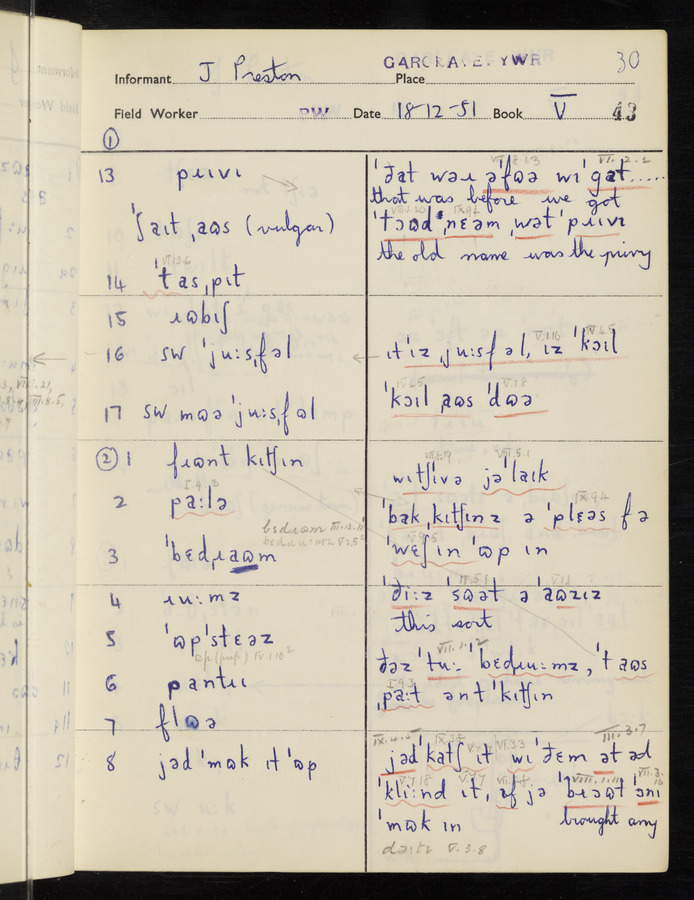 30
GARGRAVE. YWR
Informant J Preston Place
Field Worker PW Date 18-12-51 Book V 43
①
13 pɹɪvɪ
ˈʃaɪt ˌaʊs (vulgar)
14 ˈt asˌpɪt
15 ɹʊbɪʃ
16 sw ˈju:sˌfəl
17 sw mʊə ˈju:sˌfəl
② 1 fɹʊnt kɪtʃin
2 pa:lə
3 ˈbɛdˌɹaʊm
4 ɹu:mz
5 ˈʊpˈstɛəz
6 pantɹɪ
7 flʊə
8 jəd ˈmʊk ɪt ˈʊp
ˈðat wəɹ əfʊə wi ˈgat.....
that was before we got
ˈtɔʊd ˌnɛəm ˌwət ˈpɹɪvɪ
the old name was the privy
ɪt ɪz ˌju:sfəl, ɪz ˈkɔɪl
ˈkɔɪl ˌaʊs ˈdʊə
wɪtʃɪvə jə ˈlaɪk
ˈbak ˌkɪtʃɪnz ə ˈplɛəs fə
ˈwɛʃ in ˈʊp in
ˈði:z ˈsʊət ə ˈaʊzɪz
this sort
ðəz ˈtu: ˈbɛdɹu:mz, ˈt aʊs
ˌpa:t ənt ˈkɪtʃin
ˌjəd ˈkatʃ ɪt wɪ ˈðɛm ət əd
ˈkli:nd ɪt, əf jə ˈbɹɔʊt ˈɔnɪ
ˈmʊk in brought any
V.3.8